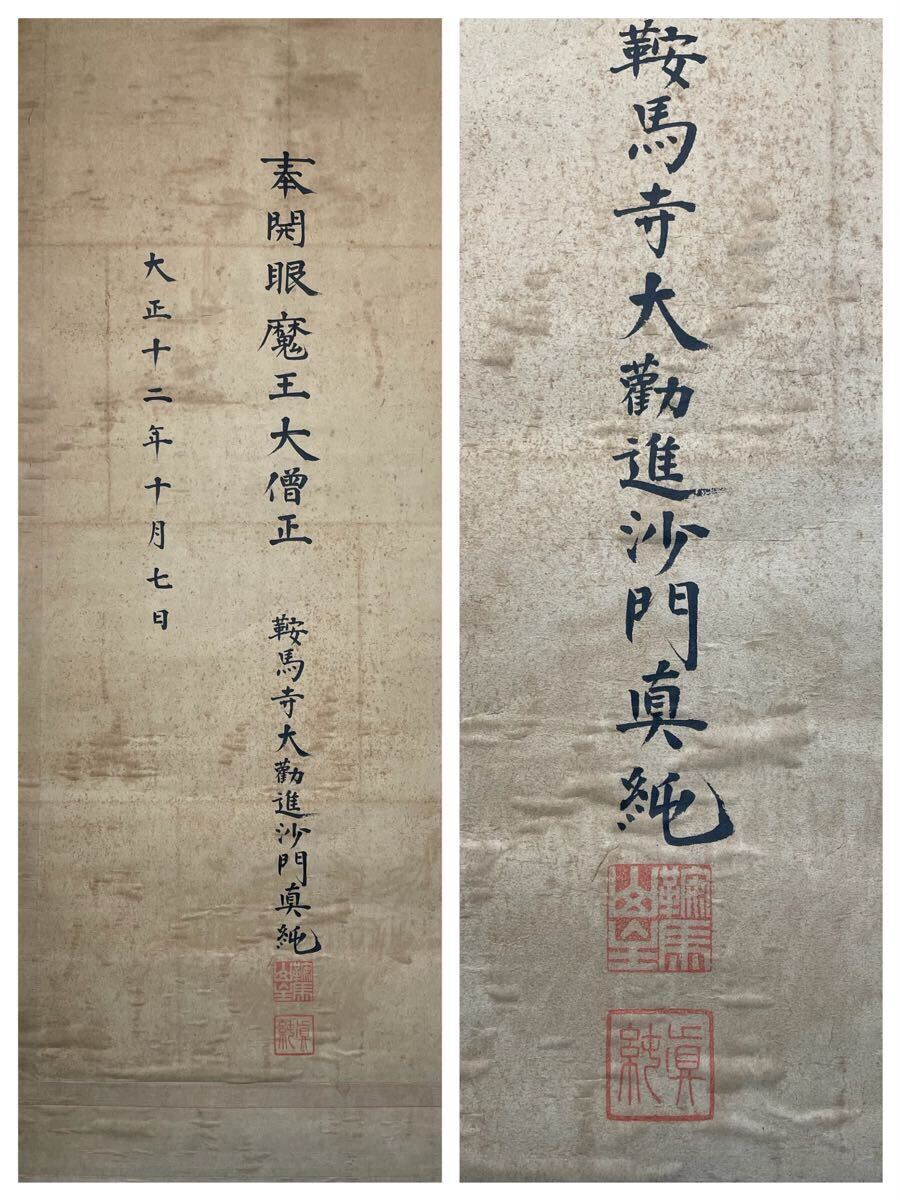 奉開眼魔王大僧正
鞍馬寺大勸進沙門真純
大正十二年十月七日
鞍馬寺大勸進沙門真純
眞純